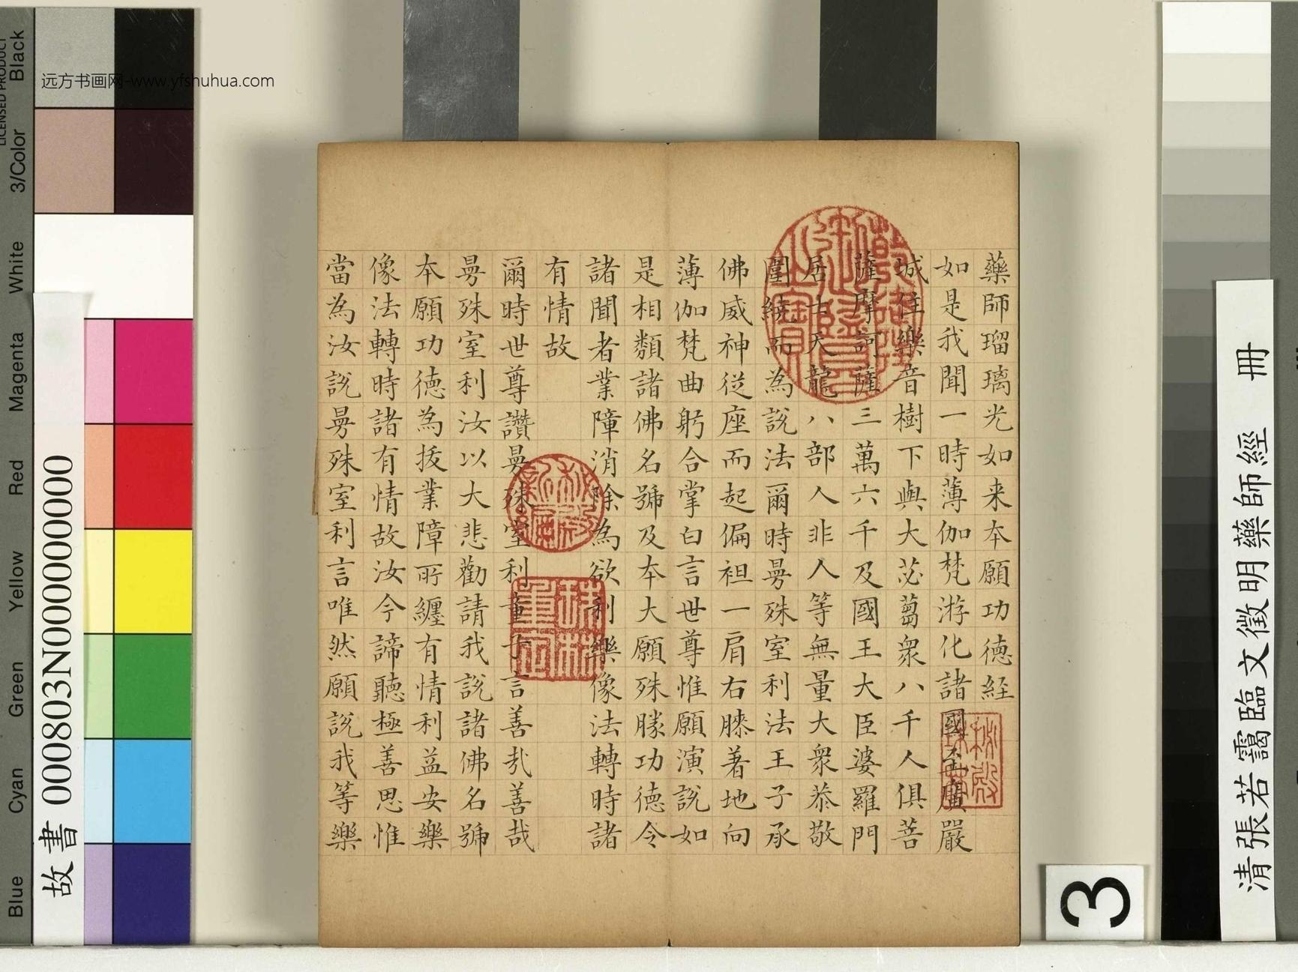 藥師瑠璃光如来本願功德経
如是我聞一時薄伽梵游化諸國至廣嚴
城住樂音樹下與大苾蒭衆八千人俱菩
薩摩訶薩三萬六千及國王大臣婆羅門
居士天龍八部人非人等無量大衆恭敬
圍繞而為説法爾時曼殊室利法王子承
佛威神從座而起偏袒一肩右膝著地向
薄伽梵曲躬合掌白言世尊惟願演説如
是相類諸佛名號及本大願殊勝功德令
諸聞者業障消除為欲利樂像法轉時諸
有情故
爾時世尊讚曼殊室利童子言善哉善哉
曼殊室利汝以大悲勸請我説諸佛名號
本願功德為拔業障所纏有情利益安樂
像法轉時諸有情故汝今諦聽極善思惟
當為汝説曼殊室利言唯然願説我等樂
清張若靄臨文徵明藥師經 冊
3
故書 000803N000000000
远方书画网-www.yfshuhua.com
LICENSED PRODUCT
Black
3/Color
White
Magenta
Red
Yellow
Green
Cyan
Blue